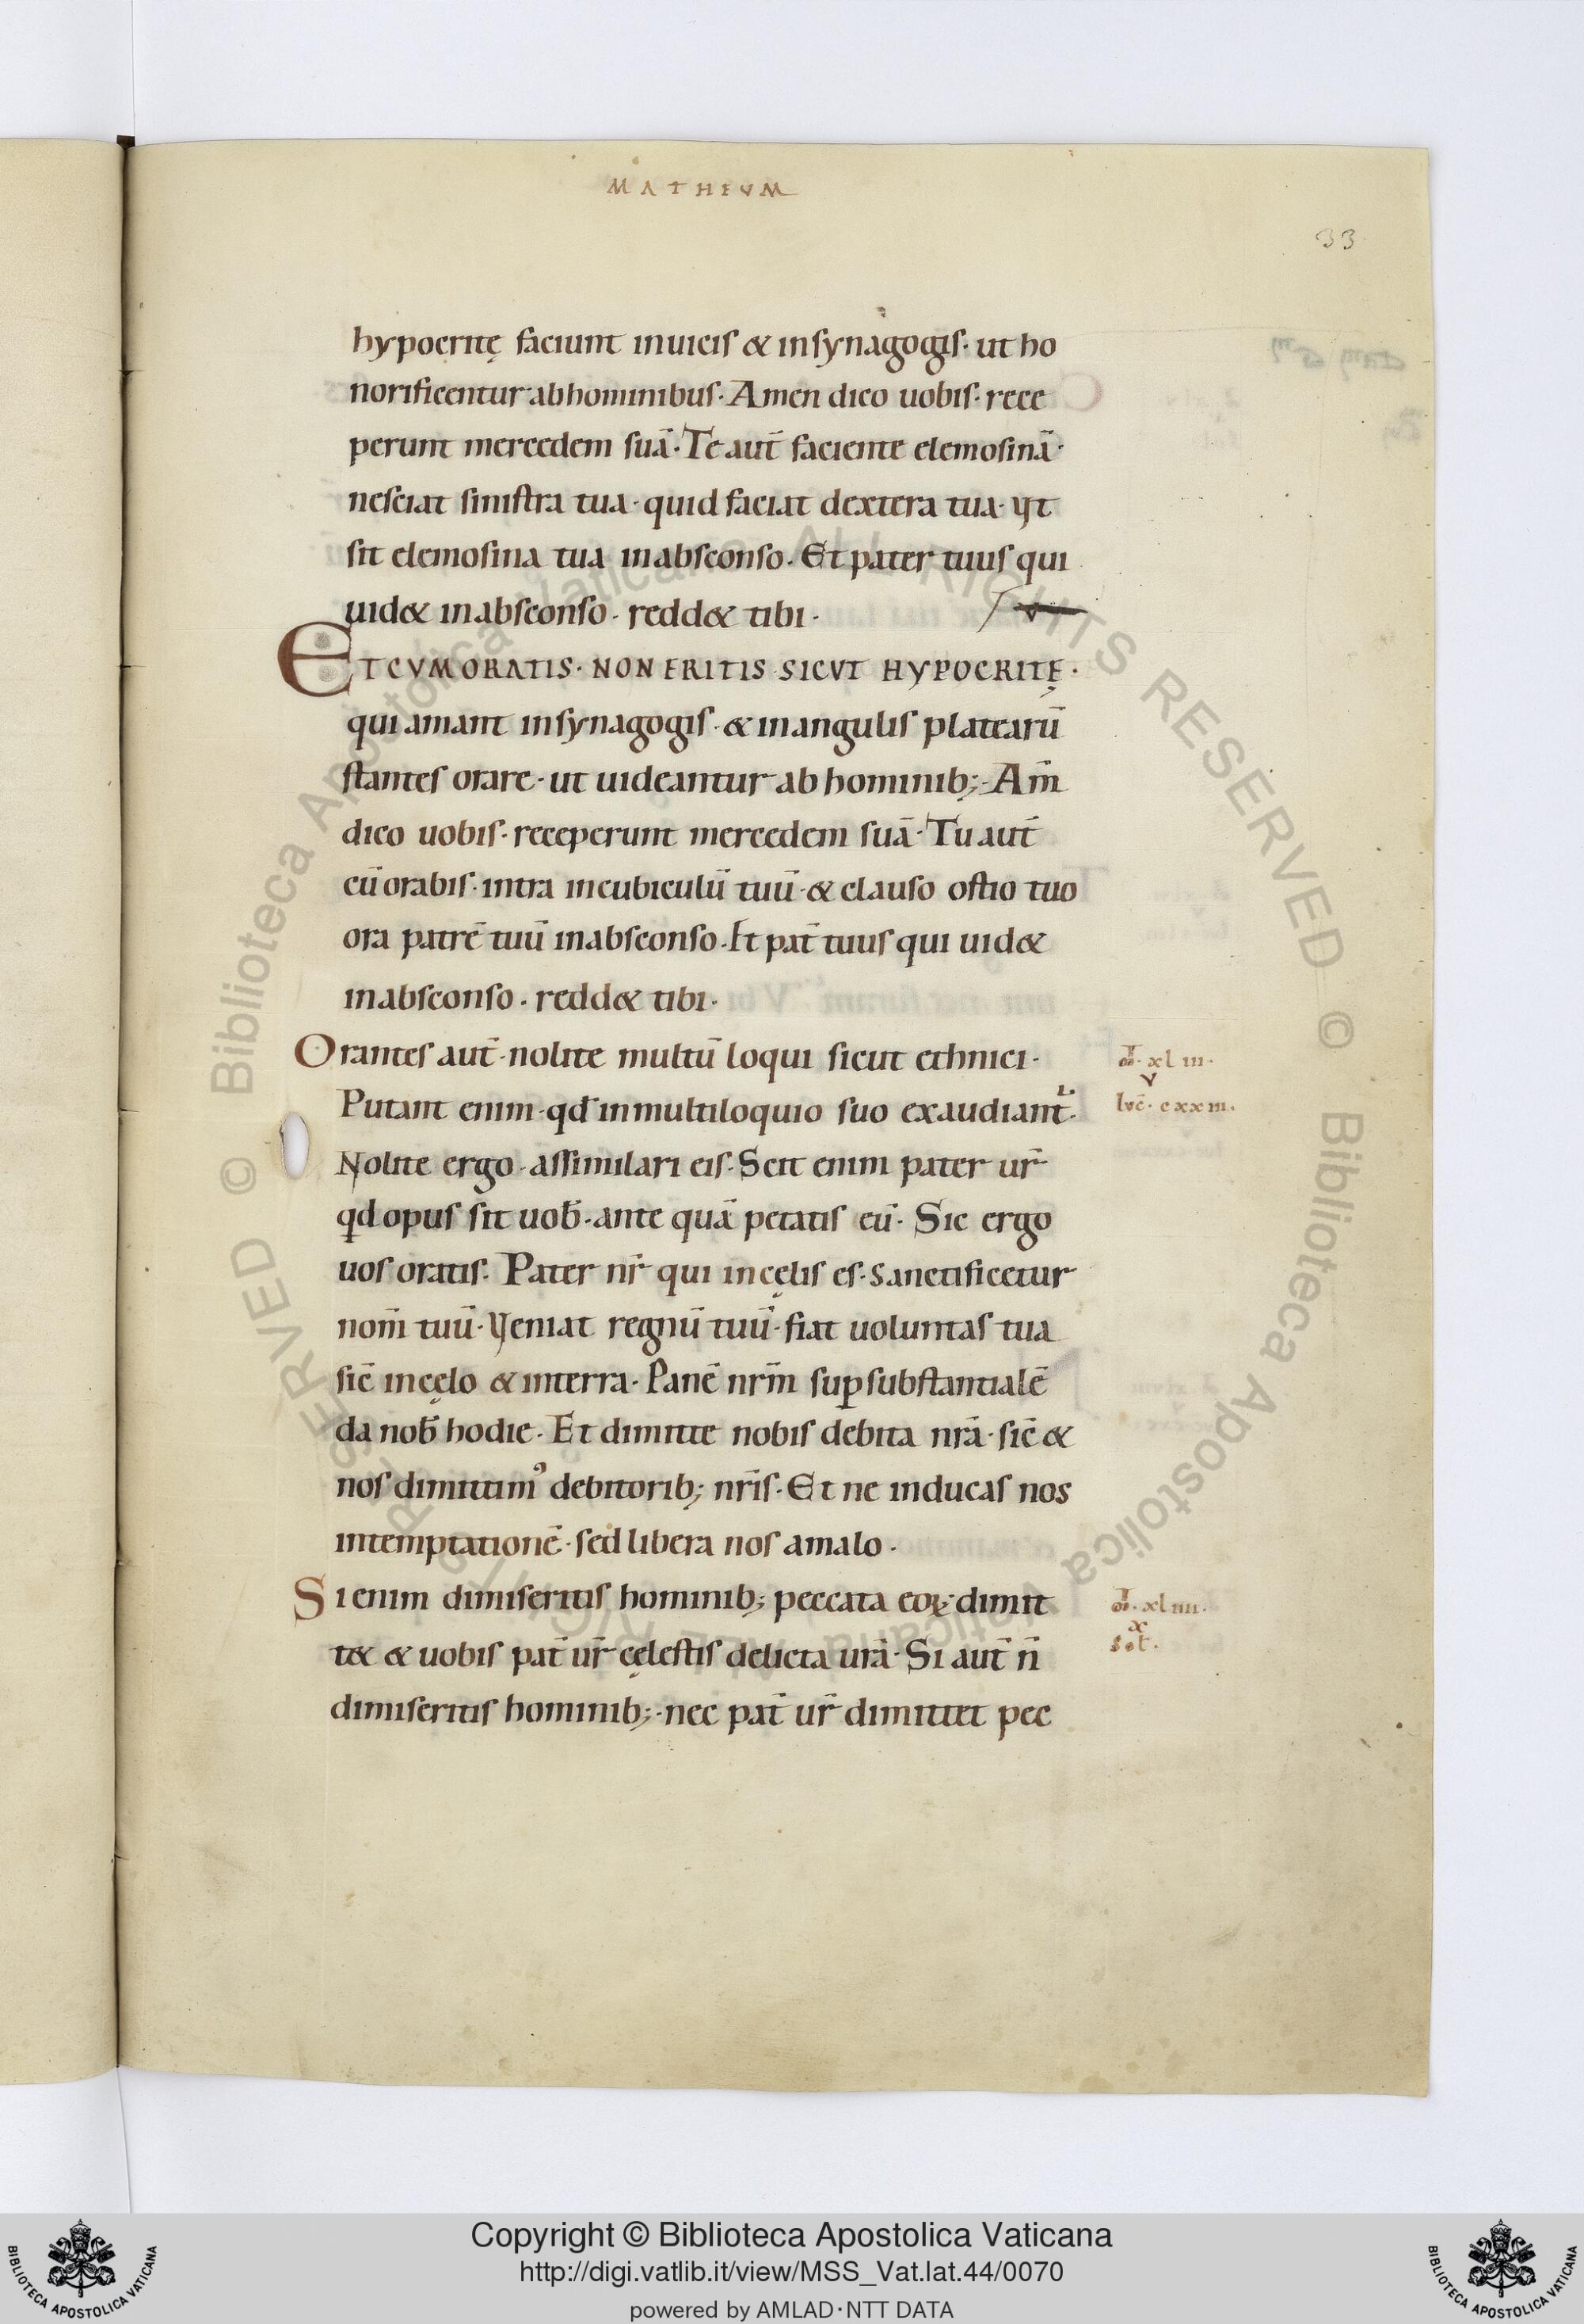 MATHEVM
33
hypocritę faciunt inuicis & insynagogis· ut ho
norificentur abhominibus· Amen dico uobis· rece
perunt mercedem suā· Te aut̄ faciente elemosinā·
nesciat sinistra tua· quid faciat dextera tua· Vt
sit elemosina tua inabsconso· Et pater tuus qui
uid& inabsconso· redd& tibi·
ETCVMORATIS· NON ERITIS SICVT HYPOCRITĘ·
qui amant insynagogis· & inangulis platearū
stantes orare· ut uideantur ab hominib;· Am̄
dico uobis· receperunt mercedem suā· Tu aut̄
cū orabis· intra incubiculū tuū· & clauso ostio tuo
ora patrē tuū inabsconso· Et pat̄ tuus qui uid&
inabsconso· redd& tibi·
Orantes aut̄· nolite multū loqui sicut ethnici·
Putant enim· qd̄ inmultiloquio suo exaudiant̄·
Nolite ergo· assimilari eis· Scit enim pater ur̄
qd opus sit uob̄· ante quā petatis eū· Sic ergo
uos oratis· Pater nr̄ qui incęlis es· Sanctificetur
nom̄ tuū· Veniat regnū tuū· fiat uoluntas tua
sic̄ incęlo & interra· Panē nrm̄ suꝑsubstantialē
da nob̄ hodie· Et dimitte nobis debita nrā· sic̄ &
nos dimittimꝰ debitorib; nrīs· Et ne inducas nos
intemptationē· sed libera nos amalo·
Si enim dimiseritis hominib; peccata eoꝝ· dimit
t& & uobis pat̄ ur̄ cęlestis delicta urā· Si aut̄ n̄
dimiseritis hominib;· nec pat̄ ur̄ dimittet pec
xl iii·
v
luc̄· cxxiii·
xl iiii·
x
sol·
Copyright © Biblioteca Apostolica Vaticana
http://digi.vatlib.it/view/MSS_Vat.lat.44/0070
powered by AMLAD·NTT DATA
BIBLIOTECA APOSTOLICA VATICANA
BIBLIOTECA APOSTOLICA VATICANA
© Biblioteca Apostolica Vaticana ALL RIGHTS RESERVED © Biblioteca Apostolica Vaticana ALL RIGHTS RESERVED